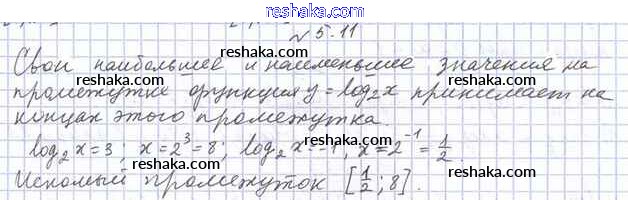 reshaka.ru
№5.11
Свои наибольшее и наименьшее значения на
промежутке функция y = log₂x принимает на
концах этого промежутка.
log₂x = 3; x = 2³ = 8; log₂x = -1, x = 2⁻¹ = 1/2.
Искомый промежуток [1/2; 8].
reshaka.ru